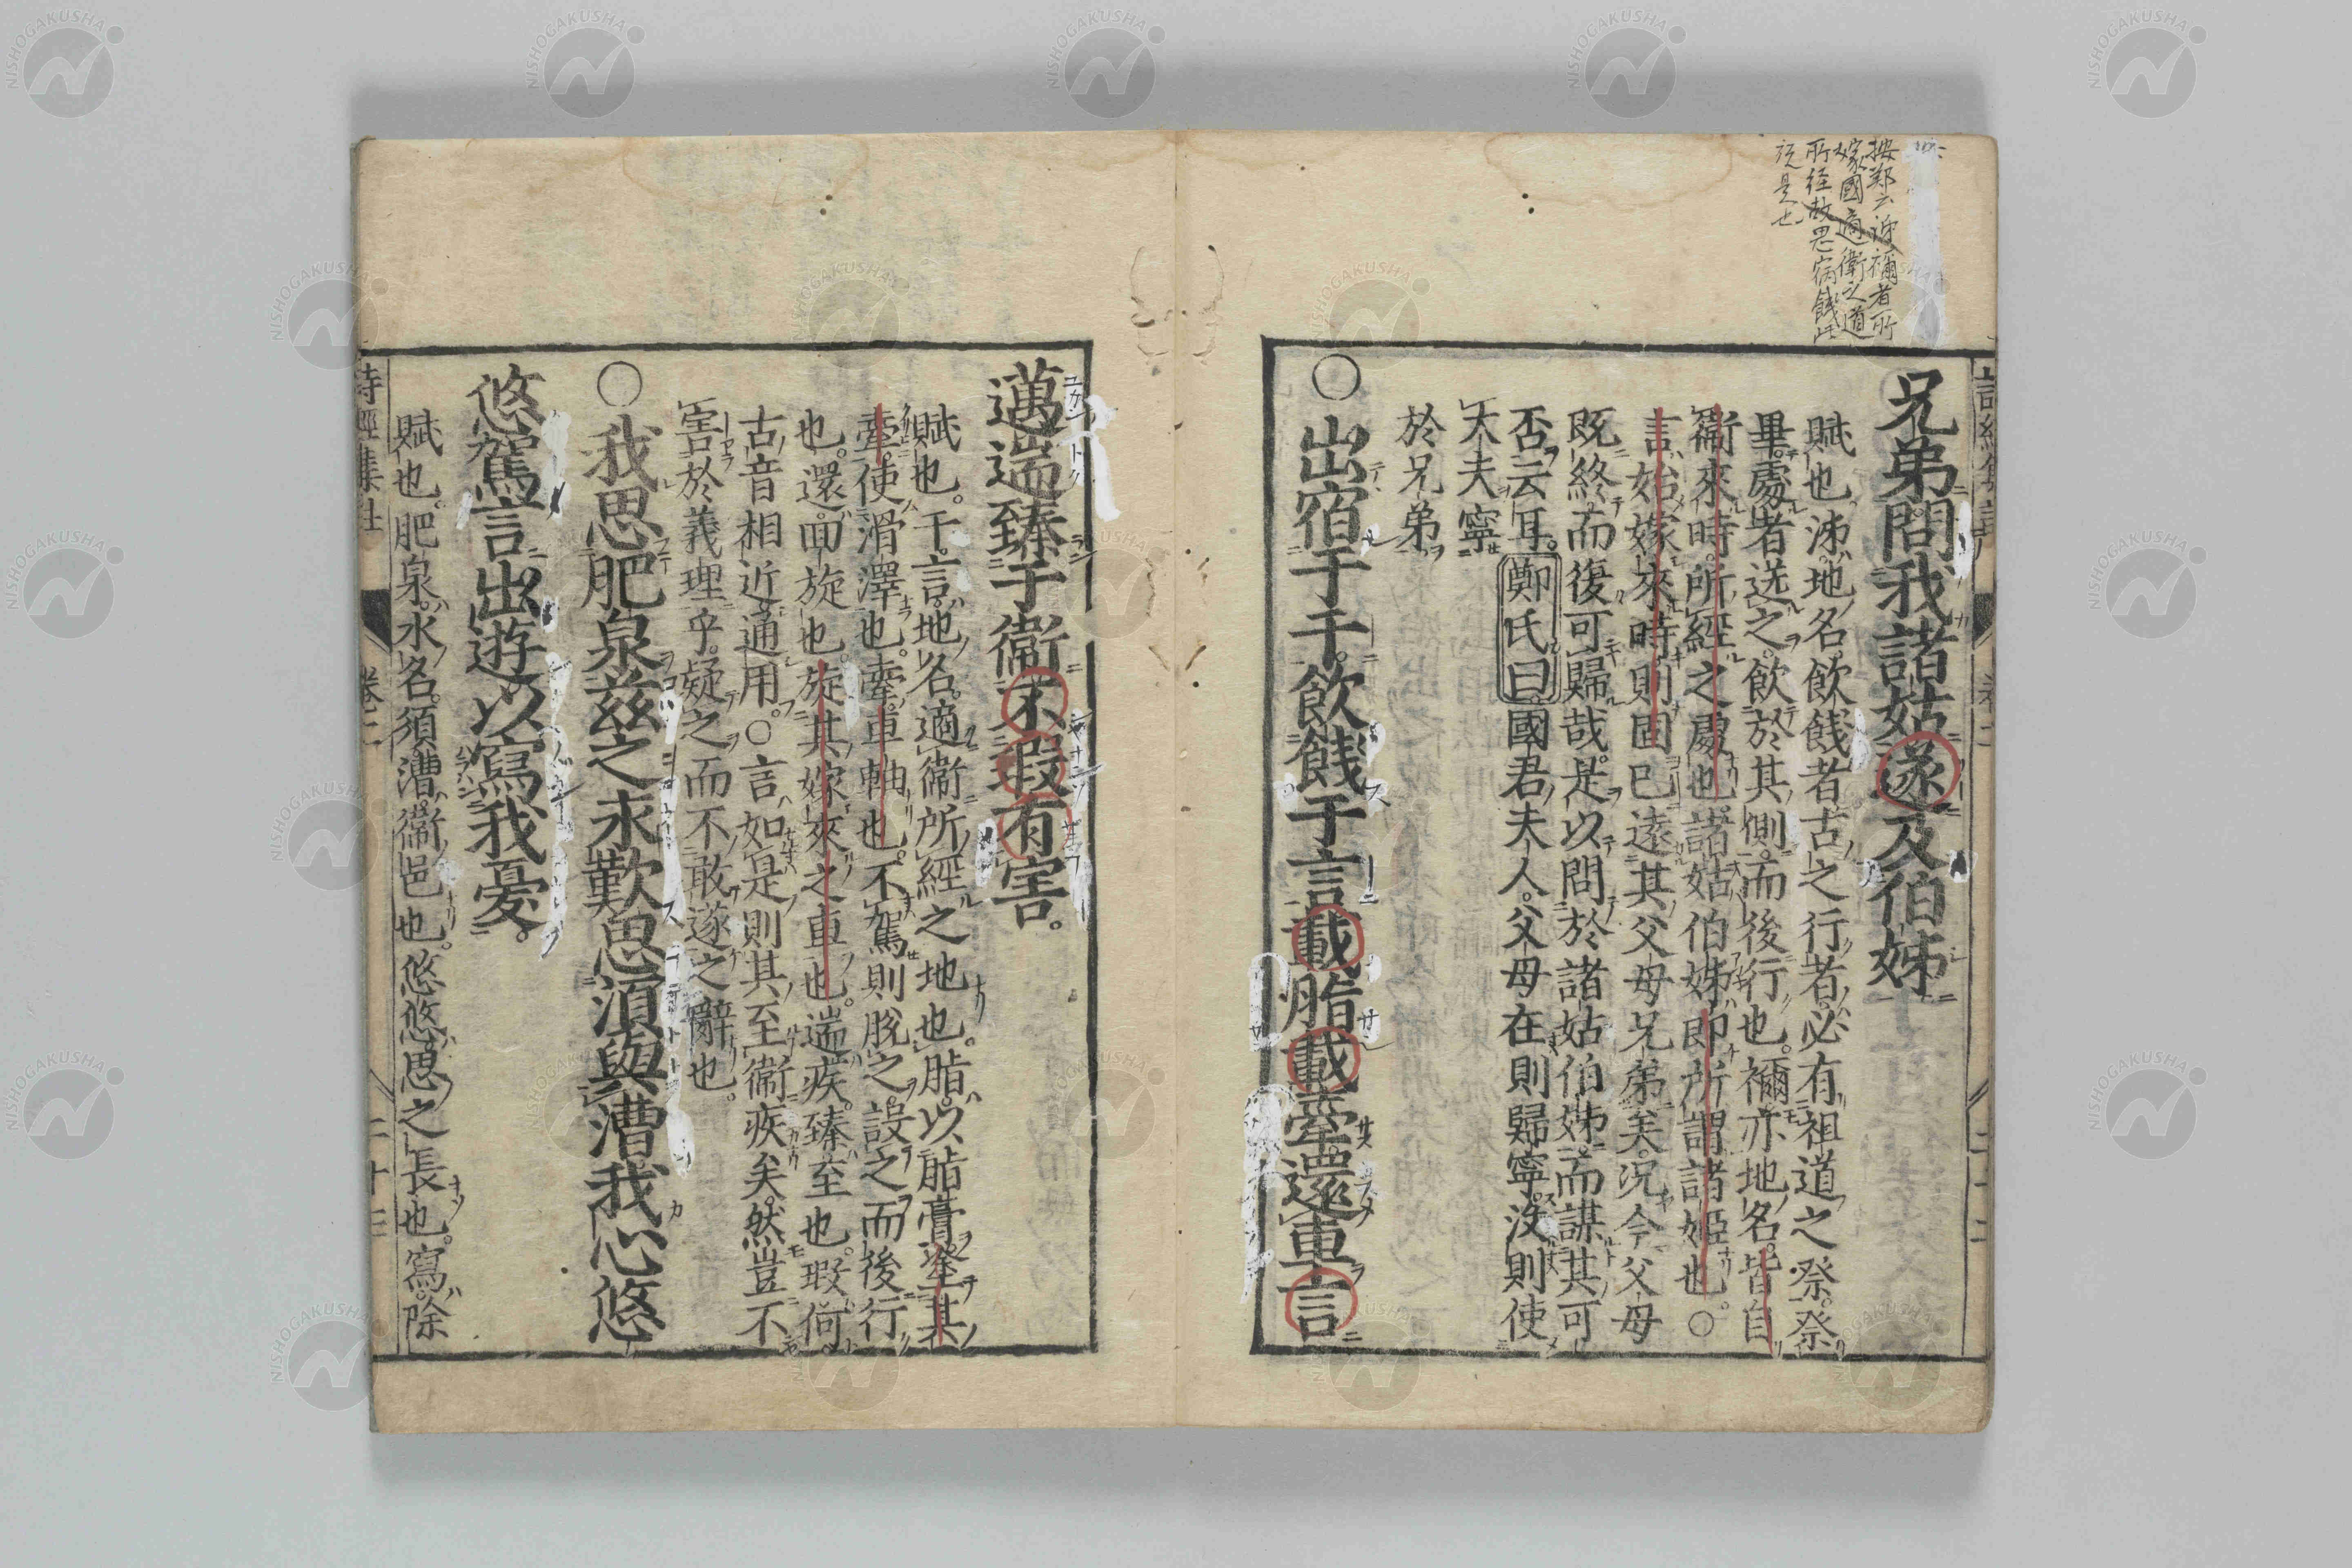 兄弟問我諸姑遂及伯姊
賦也泲地名飲餞者古之行者必有祖道之祭祭
畢處者送之飲於其側而後行也禰亦地名皆自
衞來時所經之處也諸姑伯姊即所謂諸姬也○
言始嫁來時則固已遠其父母兄弟矣況今父母
既終而復可歸哉是以問於諸姑伯姊而謀其可
否云耳鄭氏曰國君夫人父母在則歸寧沒則使
大夫寧
於兄弟
○出宿于干飲餞于言載脂載舝還車言
邁遄臻于衞不瑕有害
賦也干言地名適衞所經之地也脂以脂膏塗其
舝使滑澤也舝車軸也不駕則脫之設之而後行
也還回旋也旋其嫁來之車也遄疾臻至也瑕何
古音相近通用○言如是則其至衞疾矣然豈不
害於義理乎疑之而不敢遂之辭也
○我思肥泉茲之永歎思須與漕我心悠
悠駕言出遊以寫我憂
賦也肥泉水名須漕衞邑也悠悠思之長也寫除
詩經集註 卷二 二十三
按鄭云泲禰者所
嫁國適衛之道
所経故思宿餞此
説是也
NISHOGAKUSHA